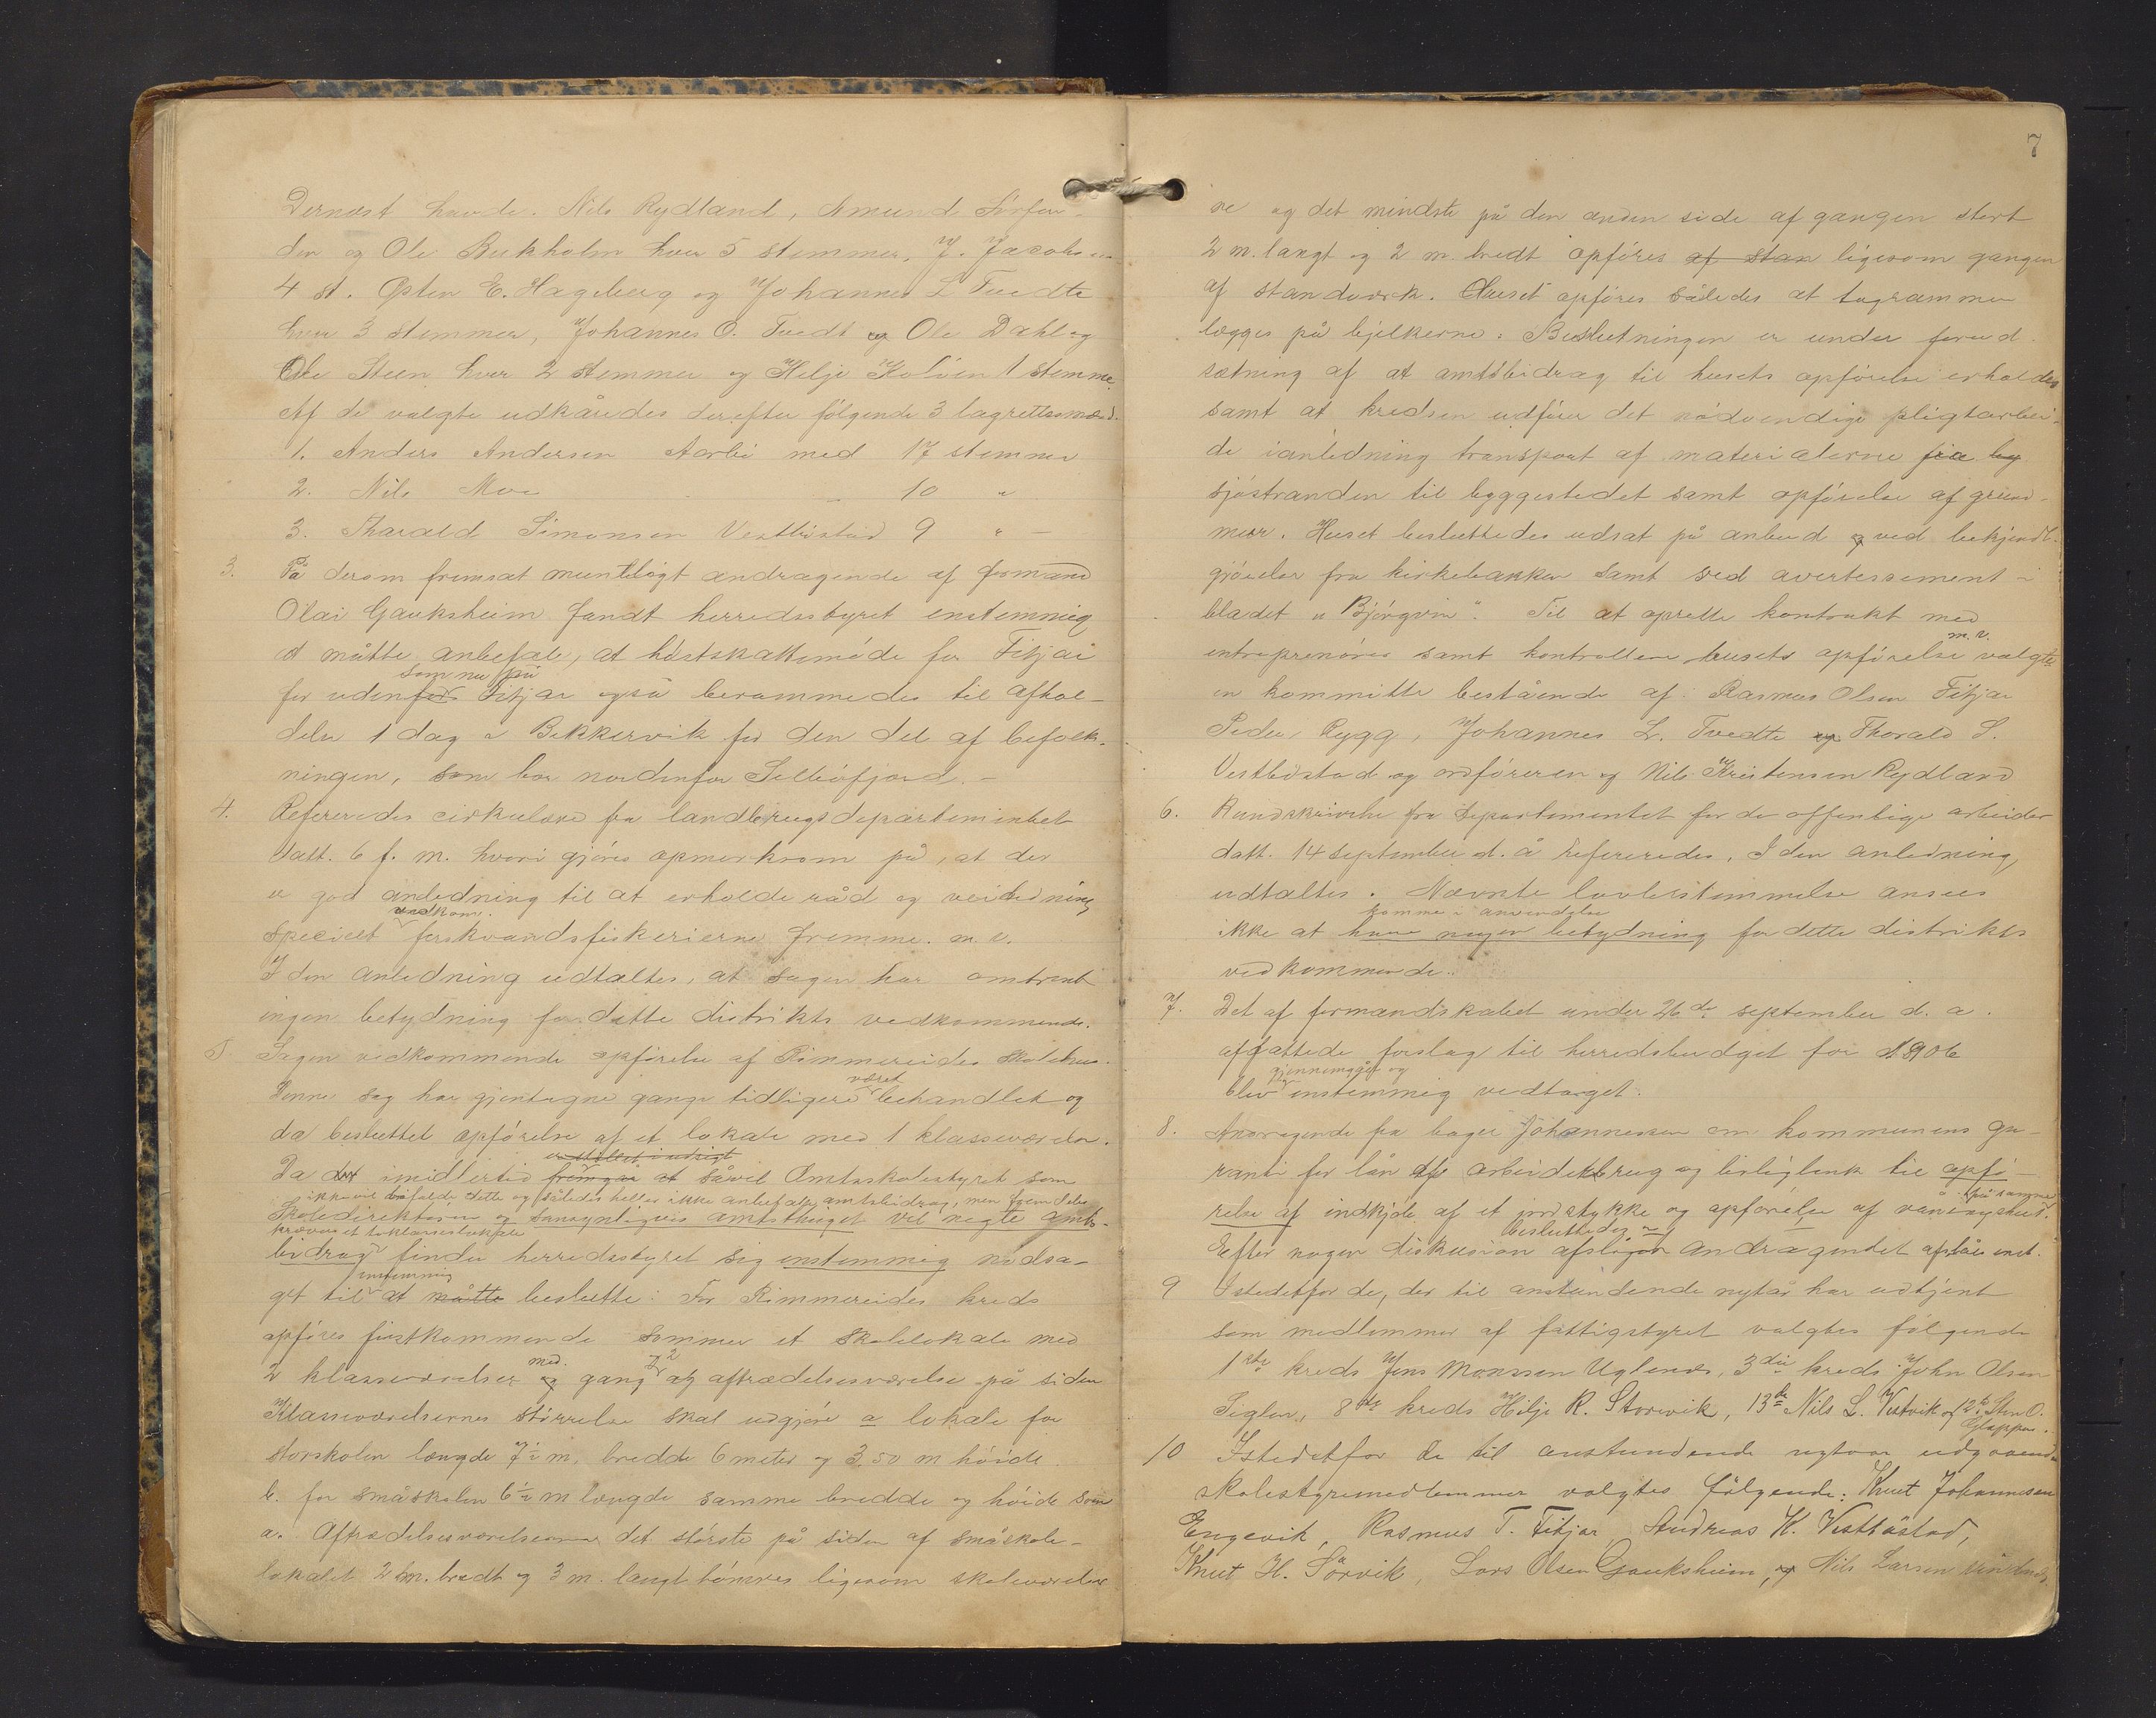 Dernæst havde. Nils Rydland, Amund Sörfon-
den og Ole Bukholm hver 5 stemmer, J. Jacobsen
4 st. Østen E. Hageberg og Johannes L Tvedte
hver 3 stemmer, Johannes O. Tvedt og Ole Dahl og
Ole Steen hver 2 stemmer og Helje Kolóen 1 stemme.
Af de valgte udkåredes derefter følgende 3 lagrettemænd.
1. Anders Andersen Aarbö med 17 stemmer
2. Nils Moe – 10 "
3. Tharald Simonsen Vestböstad 9 " –
3. På derom fremsat muntligt andragende af formand
Olai Gauksheim fandt herredsstyret enstemmig
at måtte anbefale, at höstskattemöde for Fitjar
som nu på
for udenfor Fitjar også berammedes til afhol-
delse 1 dag i Bekkervik for den del af befolk-
ningen, som bor nordenfor Selböfjord. –
4. Refereredes cirkulære fra landbrugsdepartementet
datt. 6 f. m. hvori gjöres opmerksom på, at der
er god anledning til at erholde råd og veiledning
vedkom.
specielt ferskvandsfiskerierne fremme. m. v.
I den anledning udtaltes, at sagen har omtrent
ingen betydning for dette distrikts vedkommende.
5 Sagen vedkommende opförelse af Rimmereides skolehus.
været
Denne sag har gjentagne gange tidligere behandlet og
da besluttet opförelse af et lokale med 1 klasseværelse.
er stillet i udsigt
Da det imidlertid fremgår at såvel Amtsskolestyret som
ikke vil bifalde dette og således heller ikke anbefale amtsbidrag, men fremdeles
Skoledirektören og sansynligvis amtsthinget vil negte amts-
kræver et toklasseslokale
bidrag finder herredsstyret sig enstemmig nödsa-
enstemmig
get til at måtte beslutte: For Rimmereides kreds
opföres förstkommende sommer et skolelokale med
med. og 2
2 klasseværelser og gang og aftrædelsesværelse på siden
Klasseværelsernes störrelse skal udgjöre a lokale for
storskolen længde 7½ m, bredde 6 meter og 3,50 m höide.
b. for småskolen 6½ m længde samme bredde og höide som
a. Aftrædelsesværelserne det störste på siden af småskole-
lokalet 2 m. bredt og 3 m. langt tömres ligesom skoleværelser
7
ne og det mindste på den anden side af gangen stort
2 m. langt og 2 m. bredt opföres af stan ligesom gangen
af standverk. Huset opföres således at tagrammen
lægges på bjelkerne: Beslutningen er under forud
sætning af at amtsbidrag til husets opförelse erholdes
samt at kredsen udförer det nödvendige pligtarbei-
de i anledning transport af materialerne fra by
sjöstranden til byggestedet samt opförelse af grund-
mur. Huset besluttedes udsat på anbud og ved bekjendt-
gjörelse fra kirkebakken samt ved avertissement i
bladet „Björgvin". Til at oprette kontrakt med
m.v.
entreprenörer samt kontrollere husets opförelse valgtes
en kommitte bestående af: Rasmus Olsen Fitjar
Peder Rygg, Johannes L. Tvedte og Thorald S.
Vestböstad og ordföreren og Nils Kristensen Rydland
6. Rundskrivelse fra Departementet for de offentlige arbeider
datt. 14 september d. å refereredes. I den anledning
udtaltes. Nævnte lovbestemmelse ansees
komme i anvendelse
ikke at have nogen betydning for dette distrikts
vedkommende.
7. Det af formandskabet under 26de september d. a.
affattede forslag til herredsbudget for 1906
gjennemgået og
blev enstemmig vedtaget.
8. Andragende fra bager Johannessen om kommunens ga-
ranti for lån af arbeiderbrug og boligbank til opfö-
på samme
relse af indkjöb af et jordstykke og opförelse af vaaningshus.
besluttedes
Efter nogen diskusion afslåes andragendet afslået enst.
9 Istedetfor de, der til anstundende nytår har udtjent
som medlemmer af fattigstyret valgtes følgende
1ste kreds Jens Monssen Uglenæs, 3die kreds John Olsen
Siglen, 8de kreds Hilje R. Storevik, 13de Nils L. Vestvik og 12te Sten O.
Glappen.
10 Istedetfor de til anstundende nytaar udgaaende
skolestyremedlemmer valgtes fölgende: Knut Johannesen
Engevik, Rasmus T. Fitjar, Andreas K. Vestböstad,
Knut H. Sörvik, Lars Olsen Gauksheim, og Nils Larsen